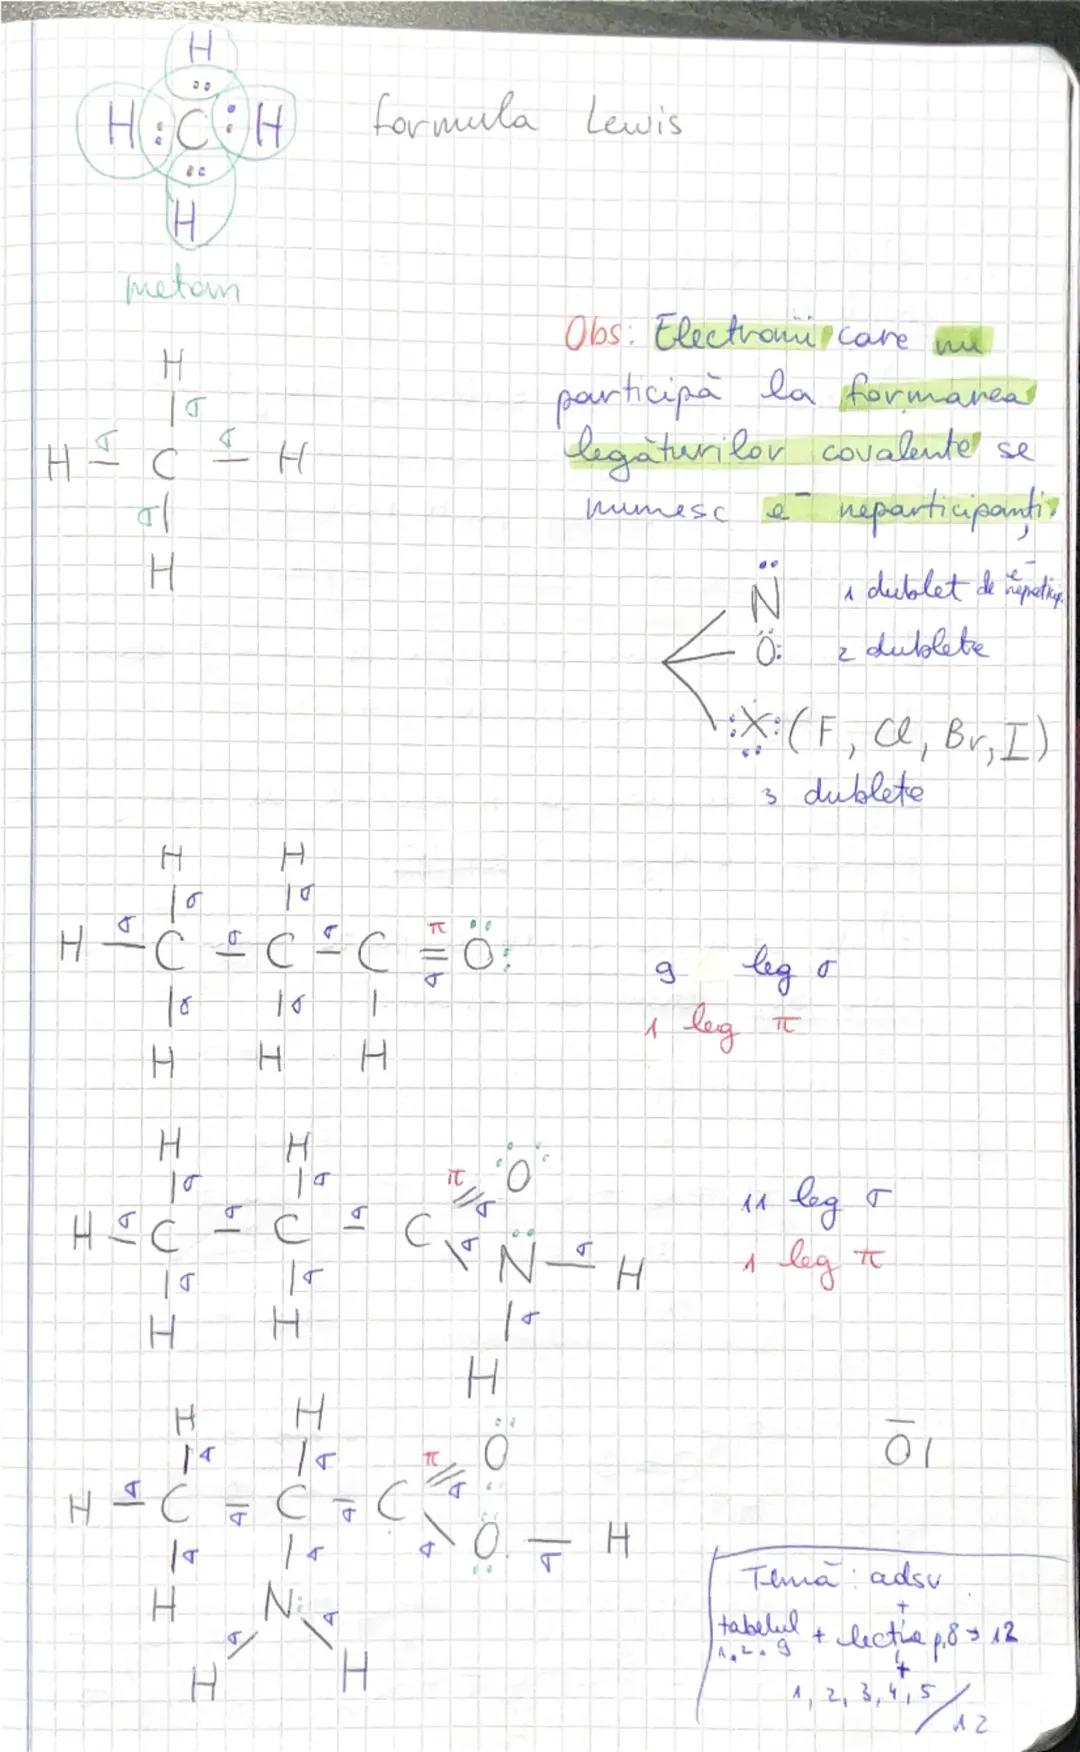 H
H : C : H
H
formula Lewis
metan
H
| σ
H σ— C σ— H
σ |
H
Obs: Electronii care nu
participă la formarea
legăturilor covalente se
numesc e⁻ neparticipanți.
N̈ 1 dublet de e⁻
Ö: 2 dublete
:X: (F, Cl, Br, I)
3 dublete
H H
| σ | σ
H σ— C σ— C σ— C π=σ Ö:
| σ | σ |
H H H
9 leg σ
1 leg π
H H :Ö:
| σ | σ π // σ
H σ— C σ— C σ— C \ σ N̈ σ— H
| σ | σ | σ
H H H
11 leg σ
1 leg π
H H Ö
| σ | σ π // σ
H σ— C —σ C —σ C σ \ Ö —σ H
| σ | σ
H N:
σ / \ σ
H H
O |
Temă: adsv
+
tabelul + lecția p.8 → 12
1, 2, 9
+
1, 2, 3, 4, 5 / 12